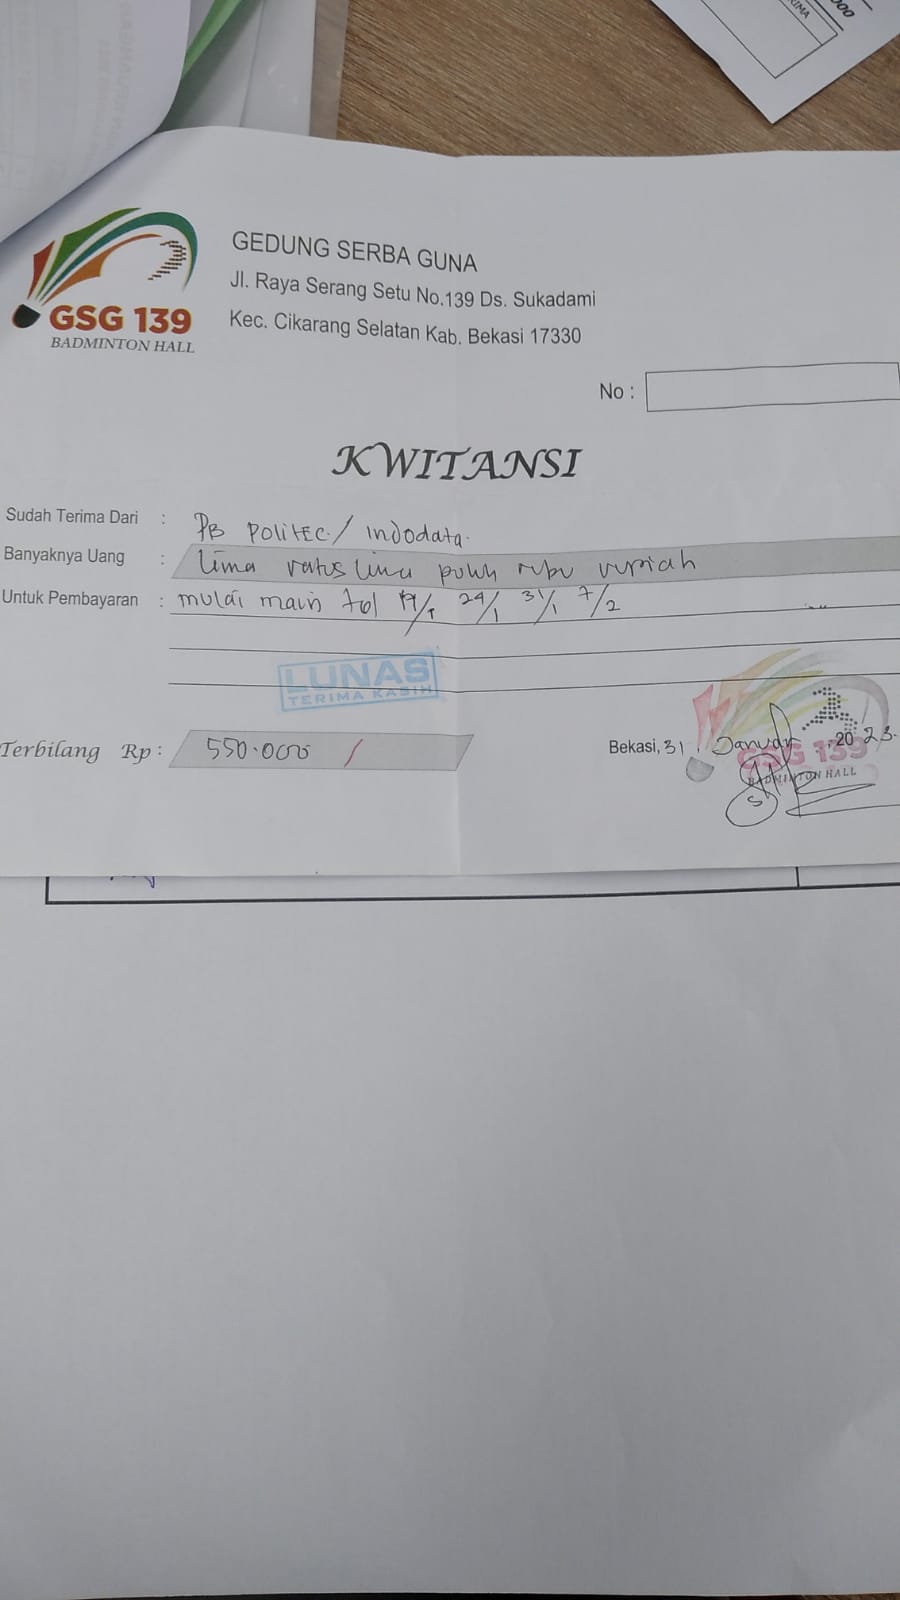 IMA
000
GSG 139
BADMINTON HALL
GEDUNG SERBA GUNA
Jl. Raya Serang Setu No.139 Ds. Sukadami
Kec. Cikarang Selatan Kab. Bekasi 17330
No :
KWITANSI
Sudah Terima Dari : PB POLITEC / indodata.
Banyaknya Uang : lima ratus lima puluh ribu rupiah
Untuk Pembayaran : mulai main tgl 24/1 31/1 7/2
LUNAS
TERIMA KASIH
Terbilang Rp : 550.000
Bekasi, 31 Januari 2023.
GSG 139
BADMINTON HALL